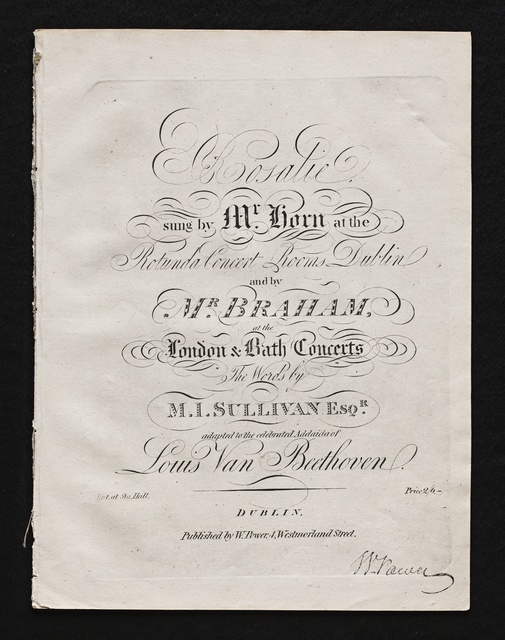 Rosalie
sung by Mr. Horn at the
Rotunda Concert Rooms Dublin
and by
MR. BRAHAM,
at the
London & Bath Concerts
The Words by
M.I. SULLIVAN ESQR.
adapted to the celebrated Addaida of
Louis Van Beethoven.
Ent. at Sta. Hall. Price 2,6
DUBLIN,
Published by W. Power 4, Westmorland Street.
W. Power